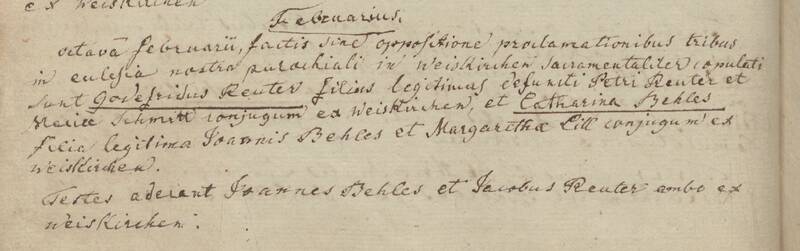 ex Weiskirchen
Februarius.
octavâ februarii, factis sine oppositione proclamationibus tribus
in eulesia nostra parochiali in Weiskirchen sacramentaliter copulati
sunt Godefridus Reuter filius legitimus defuncti Petri Reuter et
Mariæ Schmitt conjugum ex Weiskirchen, et Catharina Behles
filia legitima Joannis Behles et Margarithæ Lill conjugum ex
weiskirchen.
Testes aderant Joannes Behles et Jacobus Reuter ambo ex
weiskirchen.